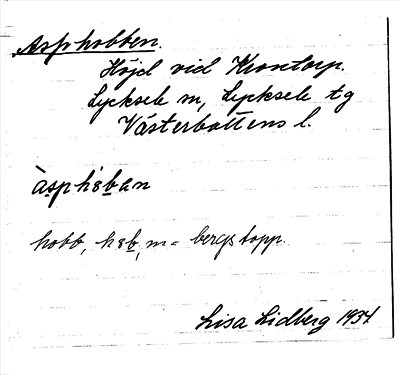 Asphobben.
Höjd vid Krontorp.
Lycksele m, Lycksele tg
Västerbottens l.
àsphȣban
hobb, hȣb, m = bergstopp.
Lisa Lidberg 1934